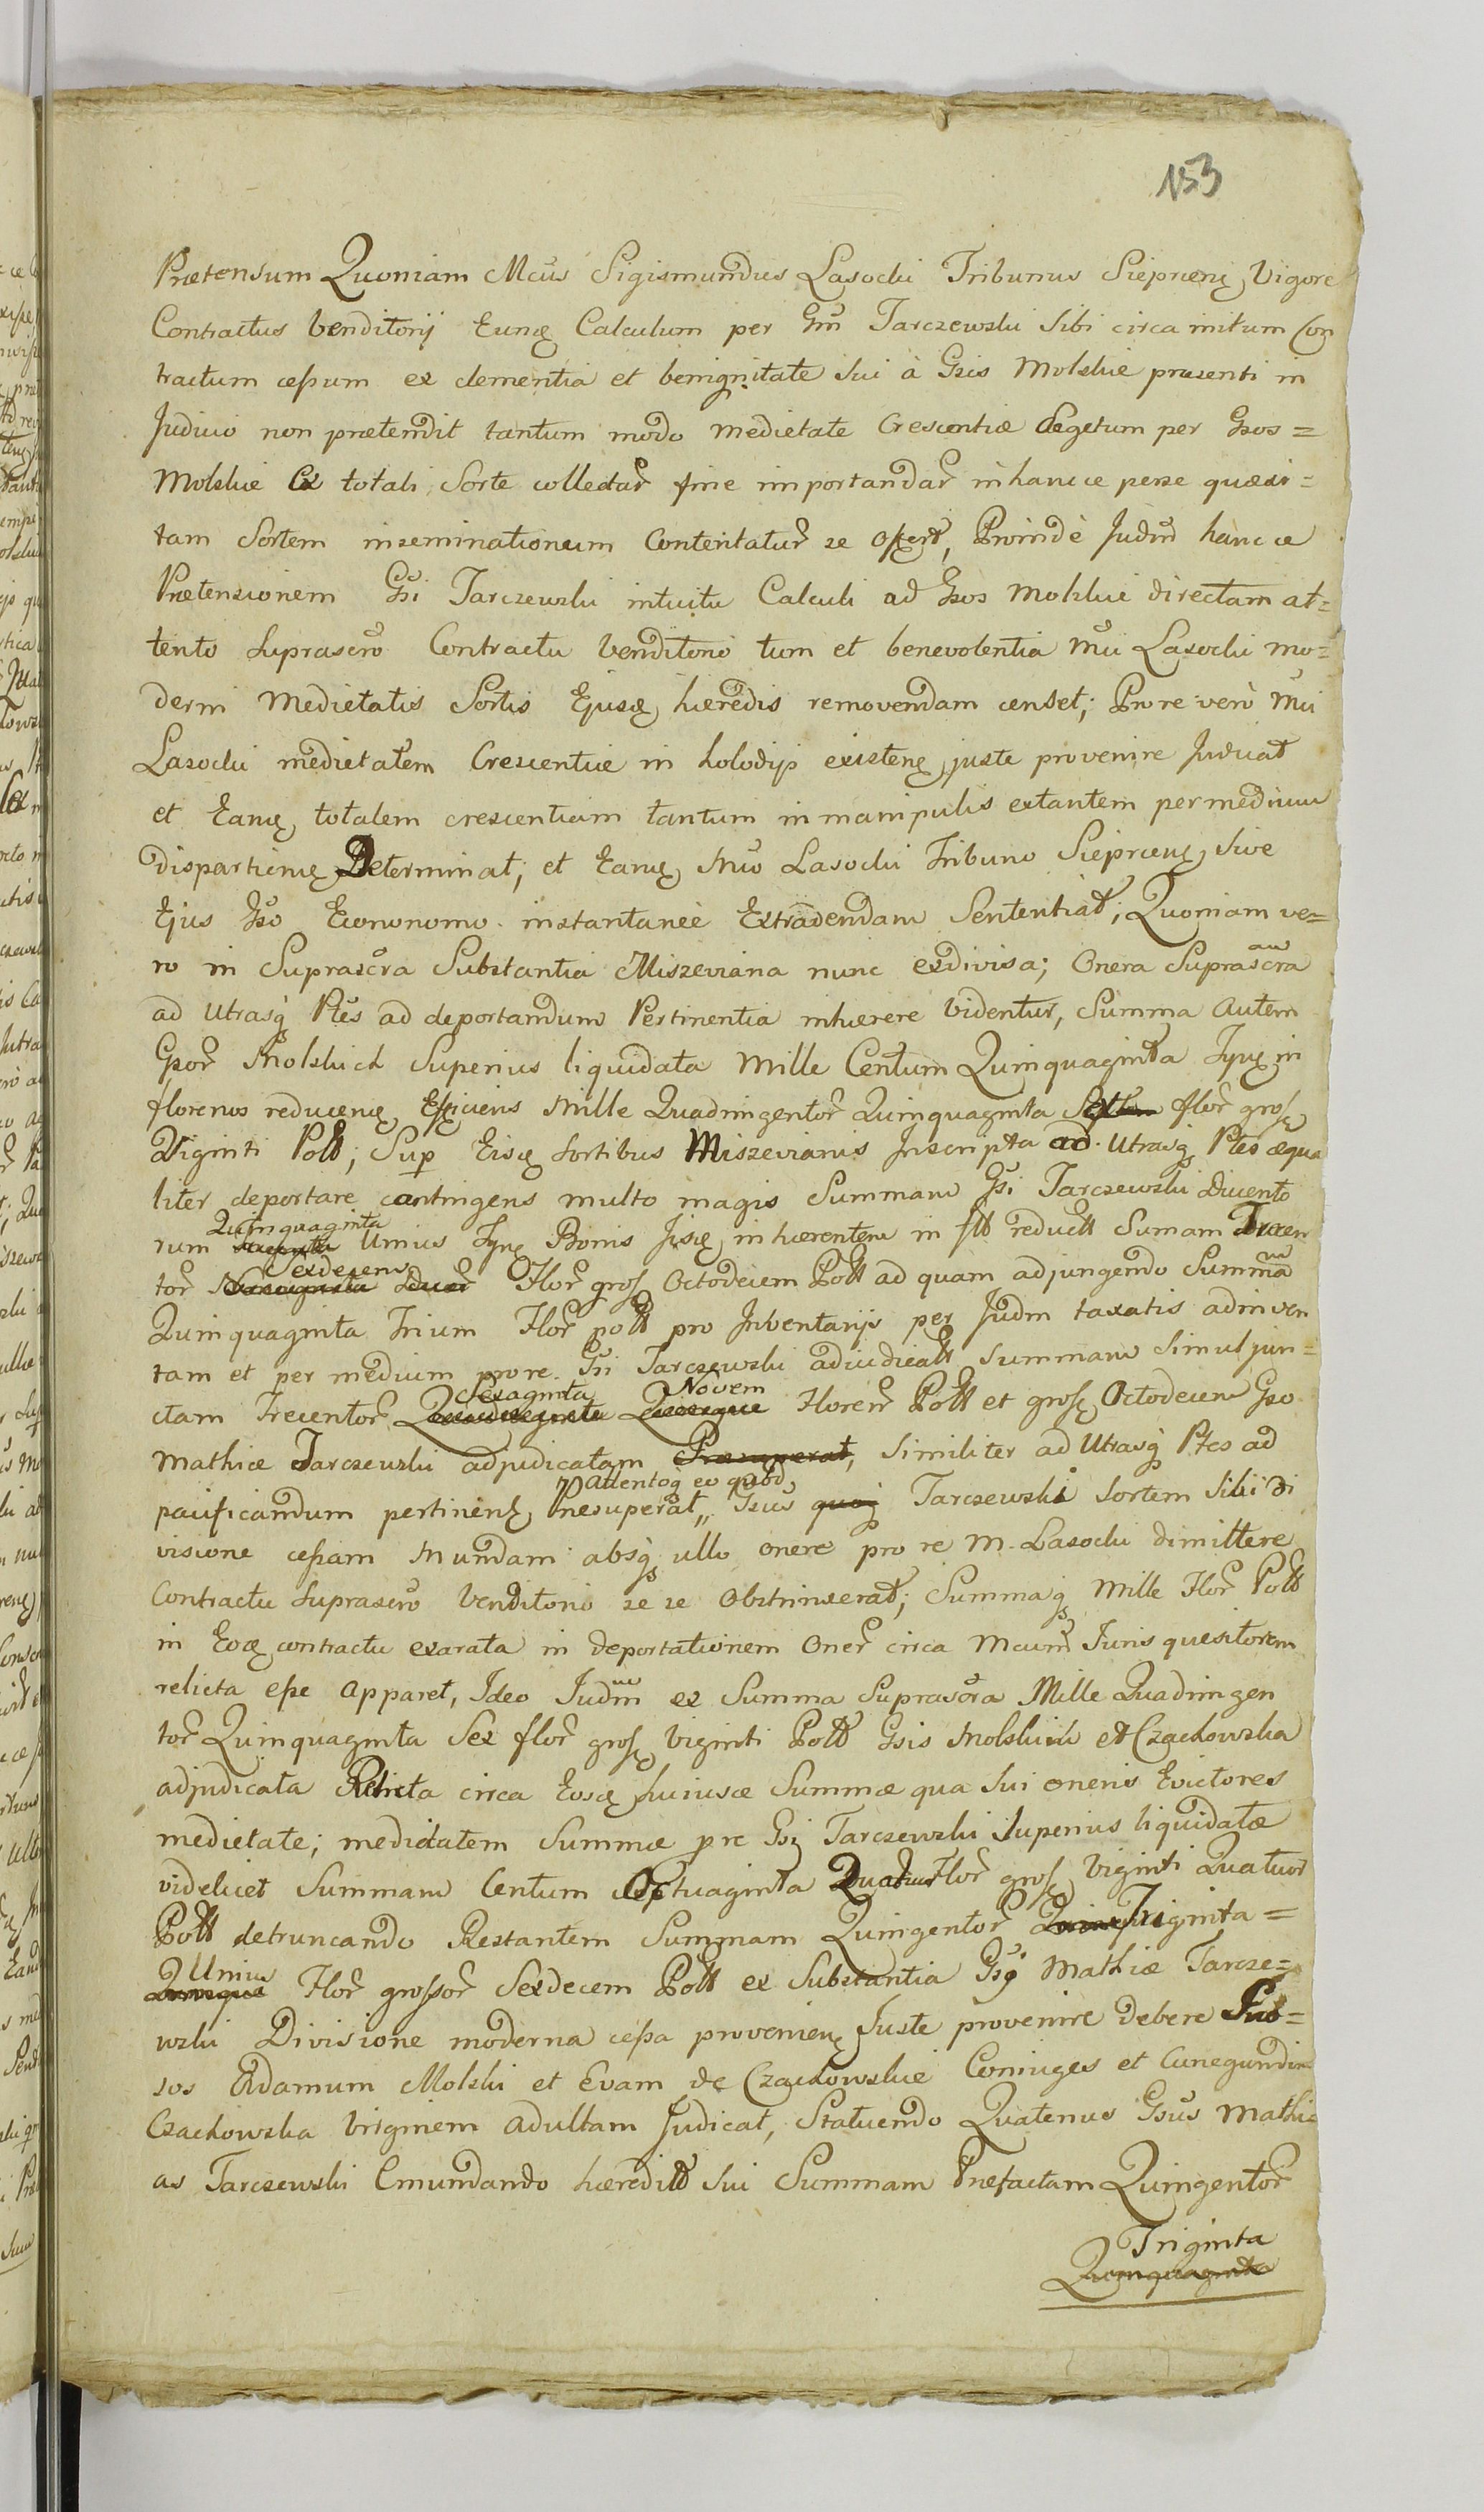 153
Prætensum Quoniam Mcus Sigismundus Lasocki Tribunus Sieprcens Vigore
Contractus Venditorij Eunę Calculum per Gm Tarczewski Sibi circa initum Con
tractum cessum ex clementia et benignitate Sui à Gsis Molskie præsenti in
Judicio non prætendit tantum modo medietate Crescentiæ segetum per Gsos =
Molskie Ex totali Sorte collectar sive importandar in hance perse quæsi =
tam Sortem inseminationeum Contentatur se offert, Proindè Judm hance
Prætensionem Gsi Tarczewski intuitu Calculi ad Gsos Molskie directam at=
tento Suprascro Contractu Venditorio tum et benevolentia Mci Lasocki mo=
derni Medietatis Sortis Ejusę hæredis removendam censet; Pro re verò Mci
Lasocki medietatem Crescentiæ in holodijs existenę juste provenire Judicat
et Eamę totalem crescentiam tantum in manipulis extantem per medium
dispartienę Determinat; et Eamę Mco Lasocki Tribuno Sieprcenę Sive
Ejus Gso Econonomo instantaneè Extradendam Sententiat; Quoniam ve=
ro in Suprascra Substantia Miszeviana nunc exdivisa; Onera Suprascra
ad Utrasq Ptes ad deportandum Pertinentia inhærere Videntur, Summa Autem
Gsor Molskich Superius liquidata Mille Centum Quinquaginta Tynę in
florenos reducenę Efficiens Mille Quadringentor Quinquaginta Septem flor gross
Viginti Poll; Sup Eisę Sortibus Miszevianis Inscripta ad Utrasq Ptes æqua
liter deportare contingens multo magis Summam Gsi Tarczewski Ducento
rum Quinquaginta Unius Tynę Bonis Iisę inhærentem in fll reducti Sumam Trecen
tor Sexdecem Flor gross Octodecem Poll ad quam adjungendo Summam
Quinquaginta Trium Flor poll pro Inventarijs per Judm taxatis adinven
tam et per medium pro re Gsi Tarczewski adiudicatt Summam Simul jun =
ctam Trecentor Sexaginta Novem Floren Poll et gross Octodecem Gso
Mathiæ Tarczewski adjudicatam Præsuperat, Similiter ad Utrasq Ptes ad
pacificandum pertinenę Præsuperat,, Attentoq eo quod Gsus quoq Tarczewski Sortem Sibi Di
visione cessam Mundam absq ullo onere pro re M. Lasocki dimittere
Contractu Suprascro Venditorio se se Obstrinxerat; Summaq Mille Flor Poll
in Eoę contractu exarata in deportationem Oner circa Mcum Juris quesitorem
relicta esse Apparet, Ideo Judm ex Summa Suprascra Mille Quadringen
tor Quinquaginta Sex flor gross Viginti Poll Gsis Molskich et Czachowska
adjudicata Relicta circa Eosę huiusce Summæ qua Sui oneris Evictores
medietate; medietatem Summæ pre Gsi Tarczewski Superius liquidatæ
videlicet Summam Centum Octuaginta Quatuor Flor gross Viginti Quatuor
Poll detruncando Restantem Summam Quingentor Triginta =
Unius Flor grossor Sexdecem Poll ex Substantia Gsi Mathiæ Tarcze=
wski Divisione moderna cessa provenienę Juste provenire debere
sos Adamum Molski et Evam de Czachowskie Coniuges et Cunegundim
Czachowska Virginem Adultam Judicat, Statuendo Quatenus Gsus Mathi=
as Tarczewski Emundando hæredit Sui Summam Præfactam Quingentor
Triginta
Quinquaginta